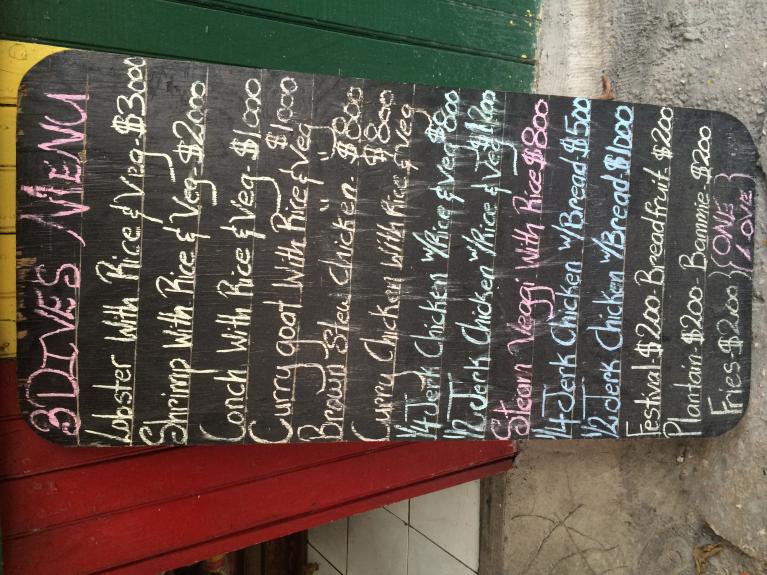 3DIVES MENU
Lobster With Rice & Veg-$3000
Shrimp With Rice & Veg-$2000
Conch With Rice & Veg-$1000
Curry goat With Rice & Veg $1000
Brown Stew Chicken. " " $800
Curry Chicken With Rice & Veg $800
1/4 Jerk Chicken w/Rice & Veg $800
1/2 Jerk Chicken w/Rice & Veg $1200
Steam Veggi With Rice $800
1/4 Jerk Chicken w/Bread-$500
1/2 Jerk Chicken w/Bread-$1000
Festival $200-Breadfruit-$200
Plantain-$200-Bammie-$200
Fries-$200 } (ONE LOVE }